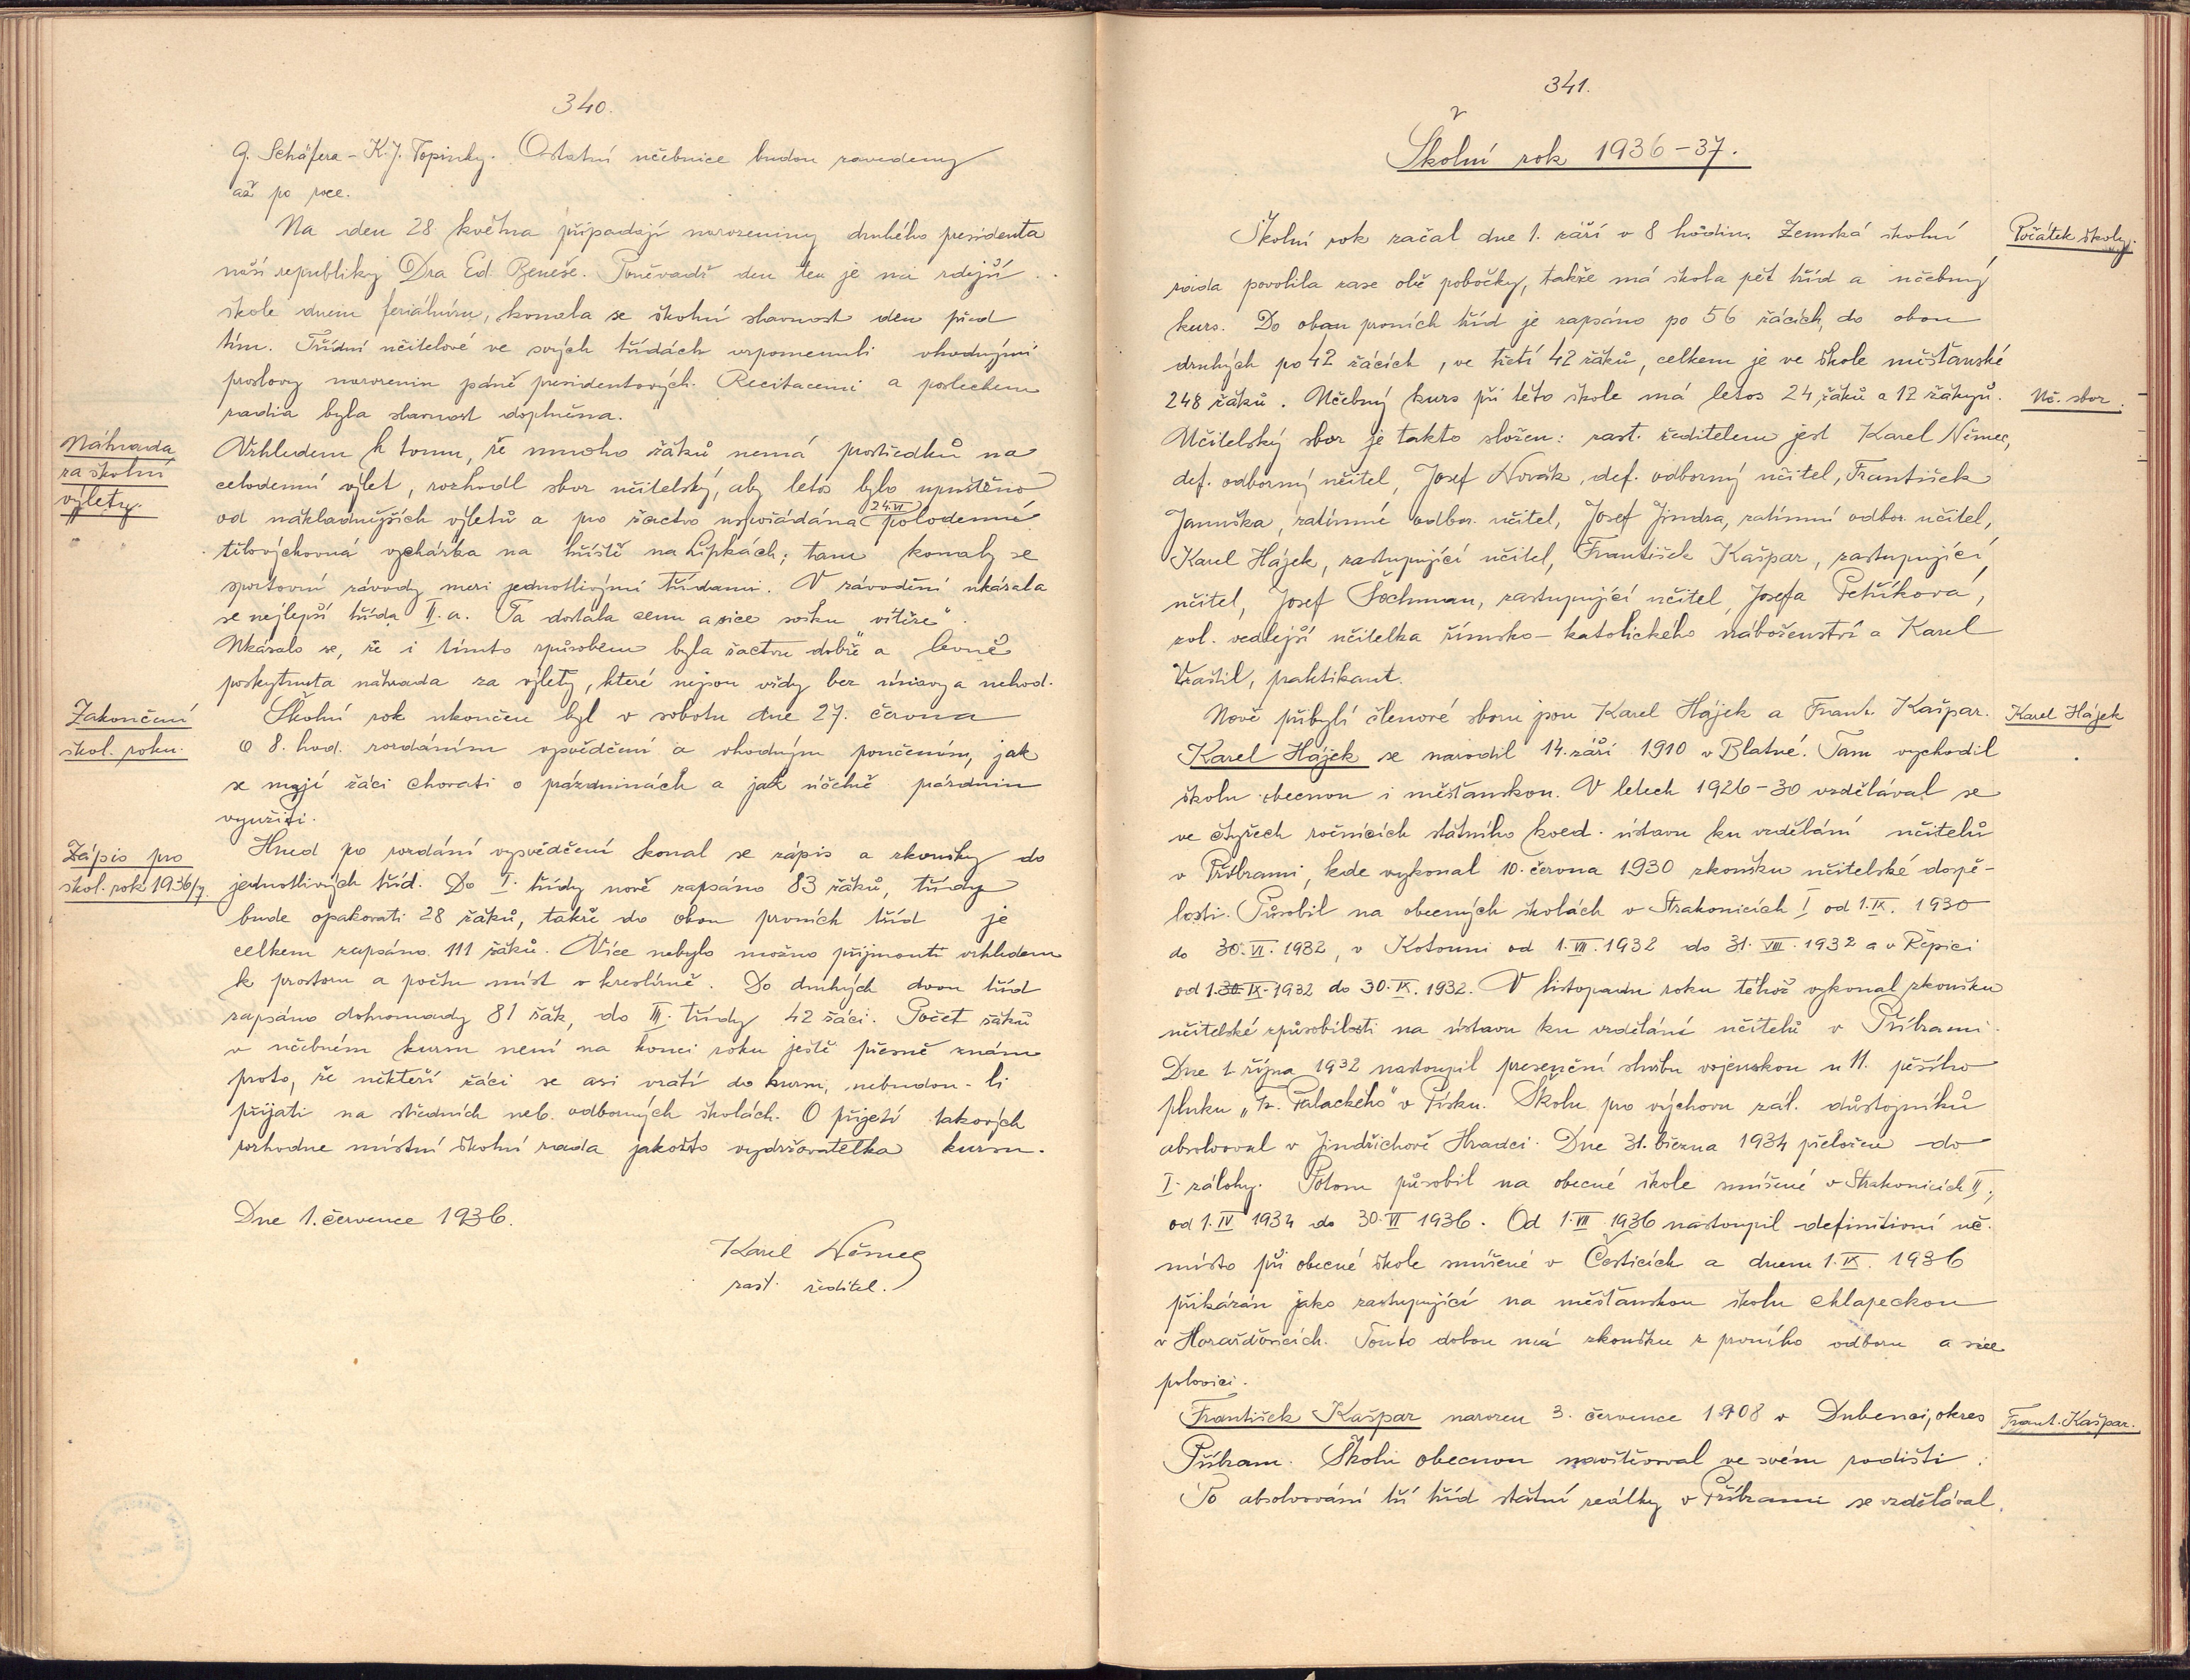 340.
G. Schäfera - K. J. Topinky. Ostatní učebnice budou zavedeny
až po roce.
Na den 28 května připadají narozeniny druhého presidenta
naší republiky Dra Ed. Beneše. Poněvadž den ten je na zdejší
škole dnem feriálním, konala se školní slavnost den před
tím. Třídní učitelové ve svých třídách vzpomenuli vhodnými
proslovy narozenin páně presidentových. Recitacemi a poslechem
radia byla slavnost doplněna.
Náhrada
za školní
výlety.
Vzhledem k tomu, že mnoho žáků nemá prostředků na
celodenní výlet, rozhodl sbor učitelský, aby letos bylo upuštěno
od nákladnějších výletů a pro žactvo uspořádána 24.VI polodenní
tělovýchovná vycházka na hřiště na Lipkách; tam konaly se
sportovní závody mezi jednotlivými třídami. V závodění ukázala
se nejlepší třída II. a. Ta dostala cenu a sice sošku vítěze".
Ukázalo se, že i tímto způsobem byla žactvu dobře a levně
poskytnuta náhrada za výlety, které nejsou vždy bez únavy a nehod.
Zakončení
škol. roku.
Školní rok ukončen byl v sobotu dne 27. června
o 8. hod. rozdáním vysvědčení a vhodným poučením, jak
se mají žáci chovati o prázdninách a jak účelně prázdnin
využíti.
Zápis pro
škol. rok 1936/7.
Hned po rozdání vysvědčení konal se zápis a zkoušky do
jednotlivých tříd. Do I. třídy nově zapsáno 83 žáků, třídy
bude opakovati 28 žáků, takže do obou prvních tříd je
celkem zapsáno 111 žáků. Více nebylo možno přijmouti vzhledem
k prostoru a počtu míst v kreslírně. Do druhých dvou tříd
zapsáno dohromady 81 žák, do III. třídy 42 žáci. Počet žáků
v učebném kursu není na konci roku ještě přesně znám
proto, že někteří žáci se asi vrátí do kursu, nebudou-li
přijati na středních neb. odborných školách. O přijetí takových
rozhodne místní školní rada jakožto vydržovatelka kursu.
Dne 1. července 1936.
Karel Němec
zast. ředitel.
341.
Školní rok 1936-37.
Školní rok začal dne 1. září v 8 hodin. Zemská školní
Počátek školy.
rada povolila zase obě pobočky, takže má škola pět tříd a učebný
kurs. Do obou prvních tříd je zapsáno po 56 žácích, do obou
druhých po 42 žácích, ve třetí 42 žáků, celkem je ve škole měšťanské
248 žáků. Učebný kurs při této škole má letos 24 žáků a 12 žákyň.
Uč. sbor.
Učitelský sbor je takto složen: zast. ředitelem jest Karel Němec,
def. odborný učitel, Josef Novák, def. odborný učitel, František
Januška, zatímní odbor. učitel, Josef Jindra, zatímní odbor. učitel,
Karel Hájek, zastupující učitel, František Kašpar, zastupující
učitel, Josef Šochman, zastupující učitel, Josefa Petříková,
zvl. vedlejší učitelka římsko-katolického náboženství a Karel
Vraštil, praktikant.
Nově přibylí členové sboru jsou Karel Hájek a Frant. Kašpar.
Karel Hájek
Karel Hájek se narodil 14. září 1910 v Blatné. Tam vychodil
školu obecnou i měšťanskou. V letech 1926-30 vzdělával se
ve čtyřech ročnících státního koed. ústavu ku vzdělání učitelů
v Příbrami, kde vykonal 10. června 1930 zkoušku učitelské dospě-
losti. Působil na obecných školách v Strakonicích I od 1.IX. 1930
do 30.VI. 1932, v Kotouni od 1.VII.1932 do 31. VIII. 1932 a v Řepici
od 1.30 IX.1932 do 30.IX. 1932. V listopadu roku téhož vykonal zkoušku
učitelské způsobilosti na ústavu ku vzdělání učitelů v Příbrami.
Dne 1. října 1932 nastoupil presenční službu vojenskou u 11. pěšího
pluku „Fr. Palackého" v Písku. Školu pro výchovu zál. důstojníků
absolvoval v Jindřichově Hradci. Dne 31. března 1934 přeložen do
I. zálohy. Potom působil na obecné škole smíšené v Strakonicích II.,
od 1.IV 1934 do 30.VI 1936. Od 1.VII 1936 nastoupil definitivní uč.
místo při obecné škole smíšené v Česticích a dnem 1.IX. 1936
přikázán jako zastupující na měšťanskou školu chlapeckou
v Horažďovicích. Touto dobou má zkoušku z prvního odboru a sice
polovici.
František Kašpar narozen 3. července 1908 v Dubenci, okres
Frant. Kašpar.
Příbram. Školu obecnou navštěvoval ve svém rodišti.
Po absolvování tří tříd státní reálky v Příbrami se vzdělával.